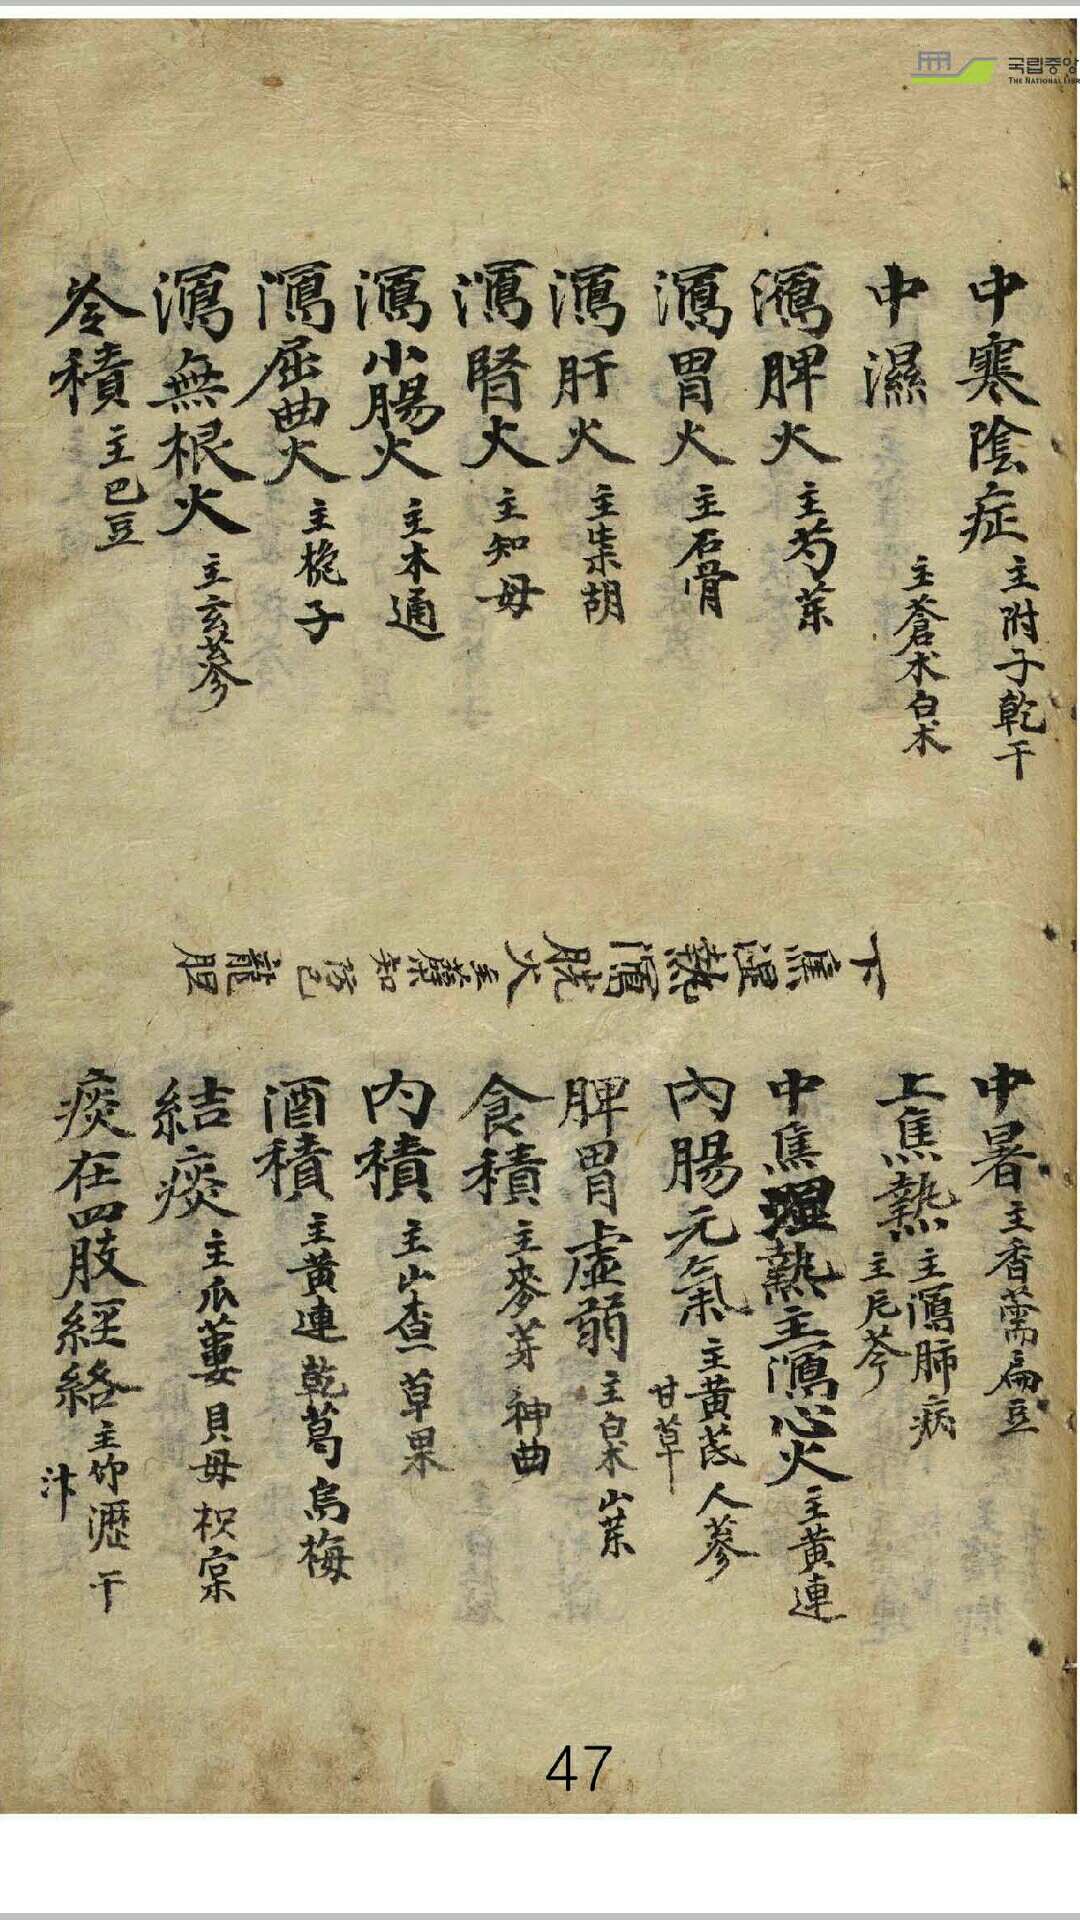 국립중앙
THE NATIONAL LIBR
中寒陰症 主附子乾干
中濕 主蒼朮白朮
瀉脾火 主芍薬
瀉胃火 主石骨
瀉肝火 主柴胡
瀉腎火 主知母
瀉小腸火 主木通
瀉屈曲火 主梔子
瀉無根火 主玄蔘
冷積 主巴豆
下焦湿熱瀉胱火主蘗知防己龍胆
中暑 主香薷扁豆
上焦熱 主瀉肺病 主片芩
中焦湿熱主瀉心火 主黄連
內腸元氣 主黄芪人蔘 甘草
脾胃虛弱 主白朮山薬
食積 主麥芽神曲
內積 主山查草果
酒積 主黄連乾葛烏梅
結痰 主瓜蔞貝母枳宲
痰在四肢經絡 主竹瀝干汁
47